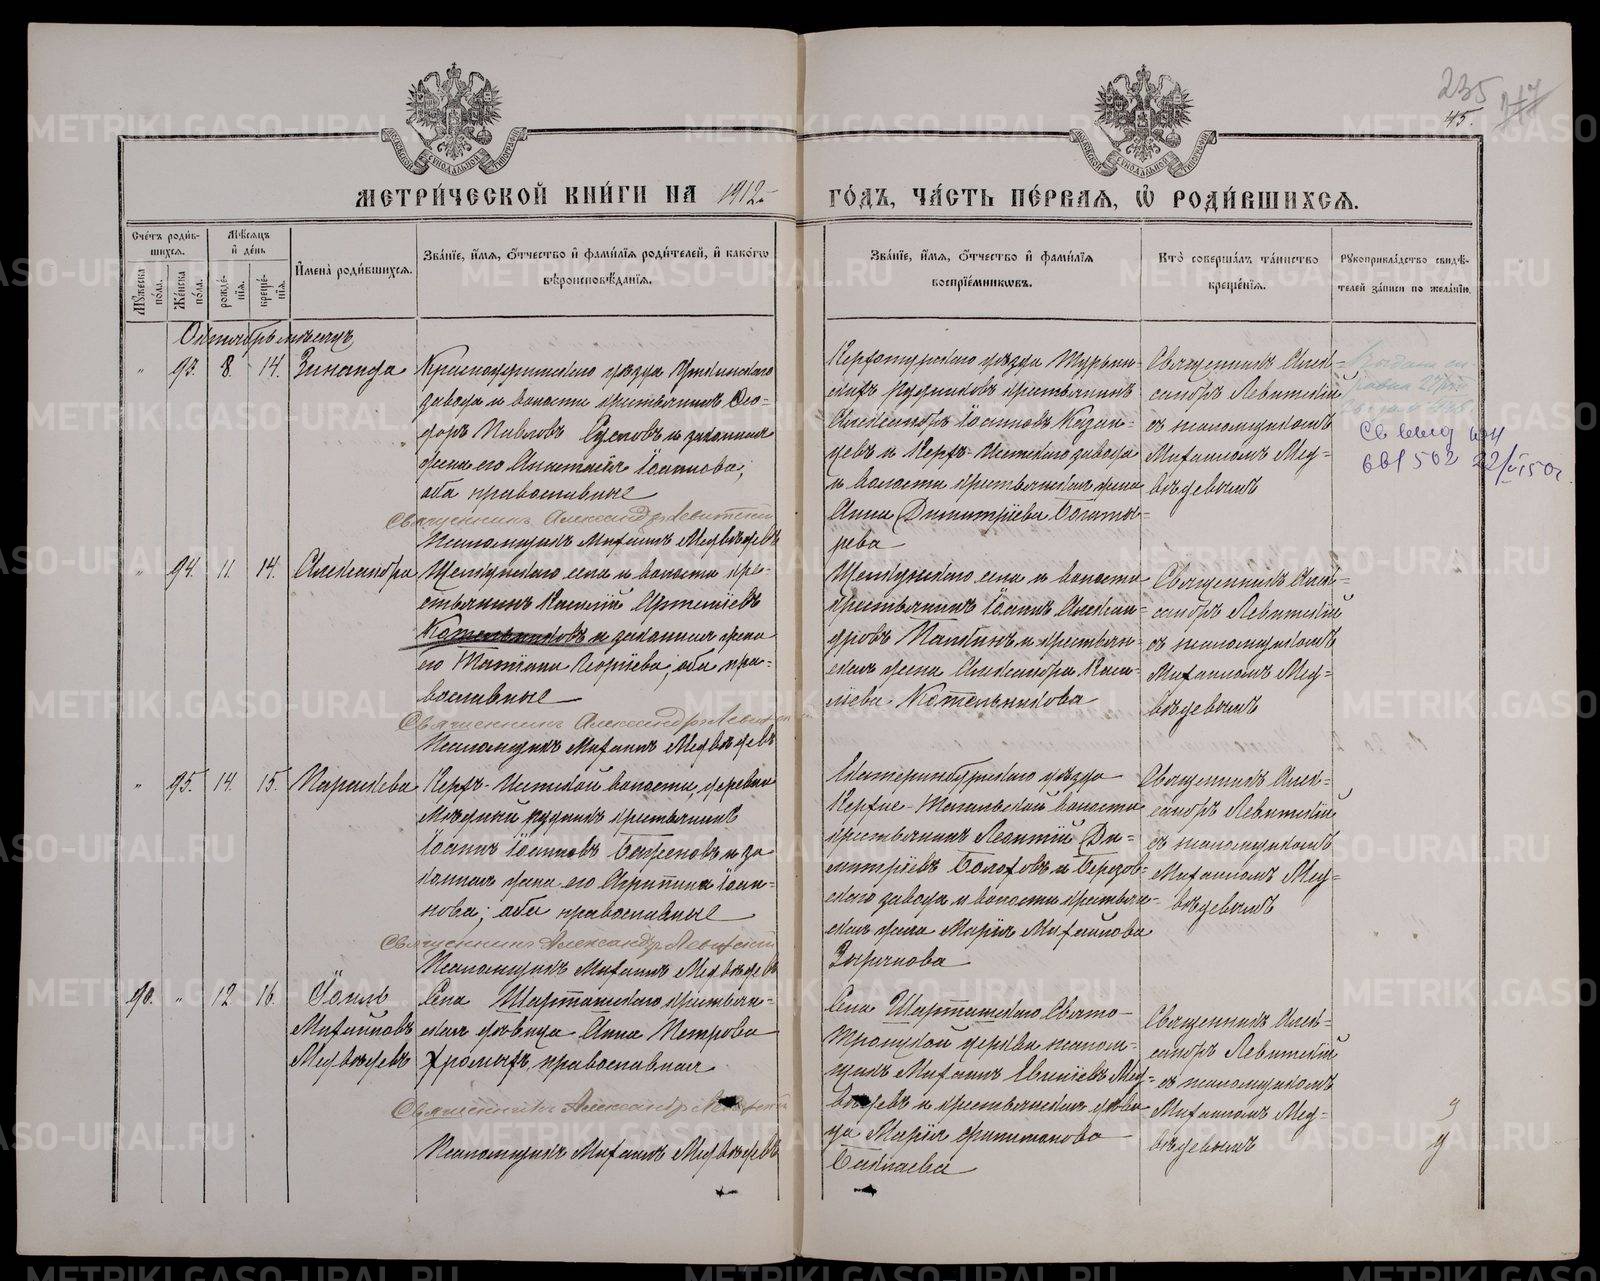 235
45.
МЕТРИЧЕСКОЙ КНИГИ НА 1912 ГОДЪ, ЧАСТЬ ПЕРВАЯ, Ѡ РОДИВШИХСЯ.
Счетъ родившихся.
Мужеска пола.
Женска пола.
Мѣсяцъ и день
рожденія.
крещенія.
Имена родившихся.
Званіе, имя, отчество и фамилія родителей, и какого
вѣроисповѣданія.
Званіе, имя, отчество и фамилія
воспріемниковъ.
Кто совершалъ таинство
крещенія.
Рукоприкладство свидѣ-
телей записи по желанію.
Октябрь мѣсяцъ
93. 8. 14. Зинаида
Красноуфимскаго уѣзда Уткинскаго
завода и волости крестьянинъ Ѳео-
доръ Павловъ и законная
жена его Анастасія Іоаннова;
оба православные
Священникъ Александръ Левитскій
Псаломщикъ Михаилъ Медвѣдевъ
Верхотурскаго уѣзда Турьин-
скихъ рудниковъ крестьянинъ
Александръ Іоанновъ Казан-
цевъ и Верхъ-Исетскаго завода
и волости крестьянская жена
Анна Димитріева Богаты-
рева
Священникъ Алек-
сандръ Левитскій
съ псаломщикомъ
Михаиломъ Мед-
вѣдевымъ
94. 11. 14. Александра
волости кре-
стьянинъ Василій
Котельниковъ и законная жена
его Татіана Георгіева; оба пра-
вославные
Священникъ Александръ Левитскій
Псаломщикъ Михаилъ Медвѣдевъ
села и волости
крестьянинъ Іоаннъ Алексан-
дровъ и крестьян-
ская жена Александра Васи-
ліева Котельникова
Священникъ Алек-
сандръ Левитскій
съ псаломщикомъ
Михаиломъ Мед-
вѣдевымъ
95. 14. 15. Параскева
Верхъ-Исетской волости, деревни
Мѣдный рудникъ крестьянинъ
Іоаннъ Іоанновъ Баженовъ и за-
конная жена его Агрипина Іоан-
нова; оба православные
Священникъ Александръ Левитскій
Псаломщикъ Михаилъ Медвѣдевъ
Екатеринбургскаго уѣзда
Верхне-Тагильской волости
крестьянинъ Леонтій Ди-
митріевъ и Березов-
скаго завода и волости крестьян-
ская жена Марія Михаилова
Зырянова
Священникъ Алек-
сандръ Левитскій
съ псаломщикомъ
Михаиломъ Мед-
вѣдевымъ
90. 12 16. Іоиль
Михаиловъ
Медвѣдевъ
Села Шарташскаго крестьян-
ская дѣвица Анна Петрова
Хромыхъ, православная
Священникъ Александръ Левитскій
Псаломщикъ Михаилъ Медвѣдевъ
Села Шарташскаго Свято-
Троицкой церкви псалом-
щикъ Михаилъ Мед-
вѣдевъ и крестьянская дѣви-
ца Марія
Баклаева
Священникъ Алек-
сандръ Левитскій
съ псаломщикомъ
Михаиломъ Мед-
вѣдевымъ